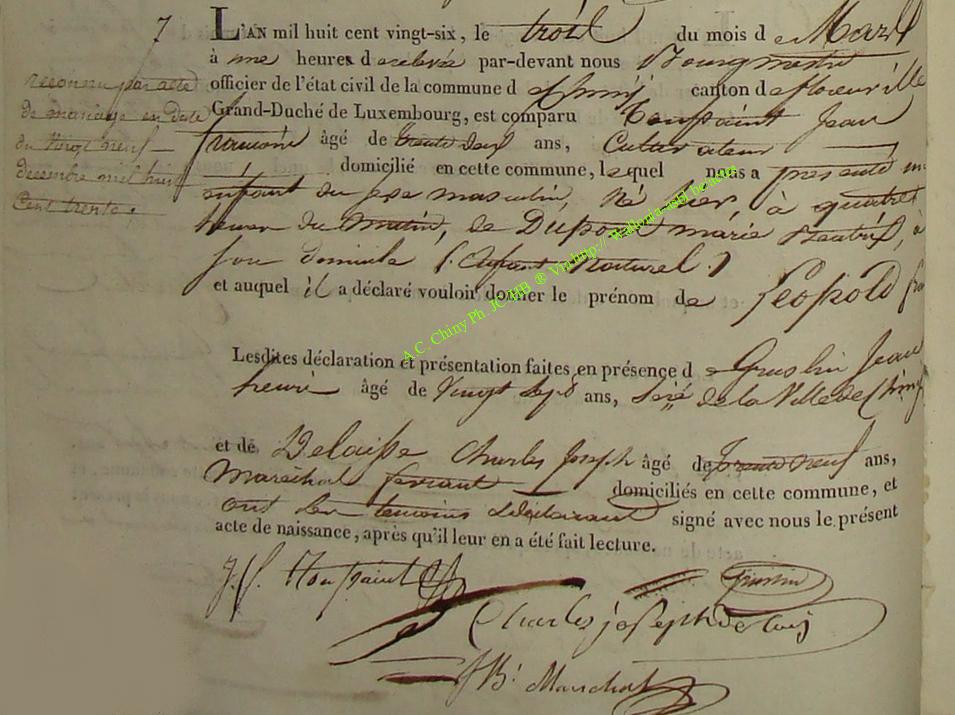 7
L'AN mil huit cent vingt-six, le trois du mois de Mars
à une heures de relevée par-devant nous Bourgmestre
officier de l'état civil de la commune de Chiny canton de florenville
Grand-Duché de Luxembourg, est comparu Toupaint Jean
françois âgé de trente deux ans, Cultivateur
domicilié en cette commune, lequel nous a presenté un
enfant du sexe masculin, Né hier, à quatre
heures du matin, de Dupont marie Beatrix, à
son domicile (Enfant Naturel)
et auquel il a déclaré vouloir donner le prénom de Leopold
Lesdites déclaration et présentation faites en présence de Gruslin Jean
henri âgé de Vingt Sept ans, de la Ville de Chiny
et de Delaisse Charles Joseph âgé de trente neuf ans,
Maréchal ferrant domiciliés en cette commune, et
ont les temoins et déclarant signé avec nous le présent
acte de naissance, après qu'il leur en a été fait lecture.
reconnu par acte
de mariage en date
du vingt neuf
decembre mil huit
Cent trente.
J. f. Toupaint
Gruslin
Charles joseph
JB.t Marchal
A.C. Chiny Ph. JCMB ® Via http://